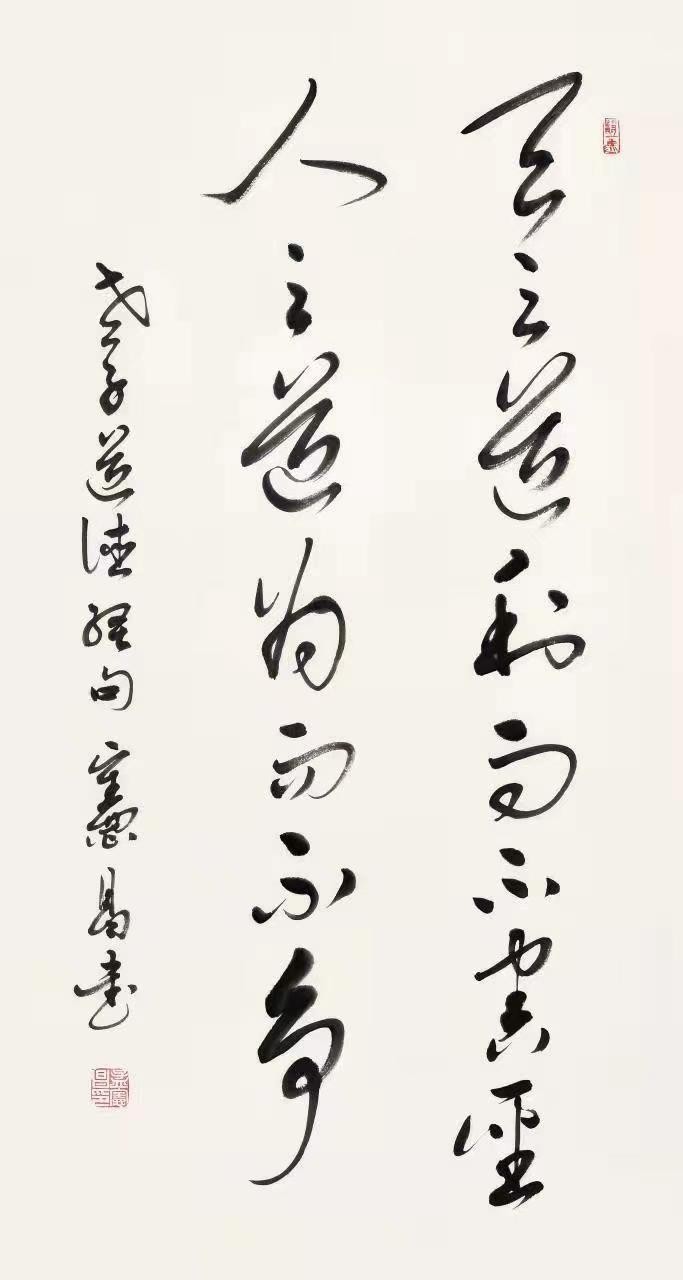 天之道利而不害聖
人之道為而不争
老子道德經句憲昌書